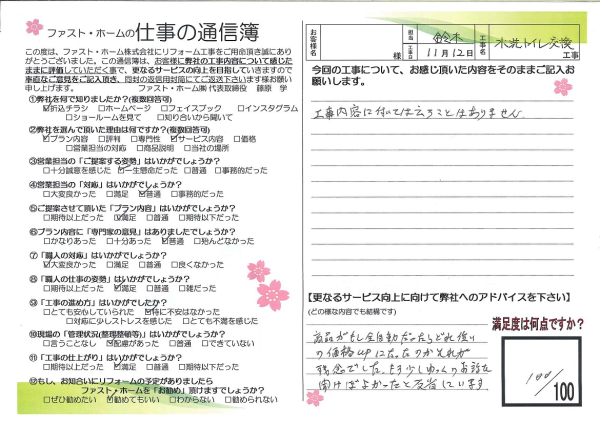 ファスト・ホームの仕事の通信簿
この度は、ファスト・ホーム株式会社にリフォーム工事をご用命頂き誠にあり
がとうございました。この通信簿は、お客様に弊社の工事内容について感じた
ままに評価していただく事で、更なるサービスの向上を目指していきますので
率直なご意見をご記入頂き、同封の返信用封筒にてご返送下さいます様お願い
申し上げます。 ファスト・ホーム㈱ 代表取締役 藤原 学
①弊社を何で知りましたか?(複数回答可)
☑折込チラシ □ホームページ □フェイスブック □インスタグラム
□ショールームを見て □知り合いから聞いて
②弊社を選んで頂いた理由は何ですか?(複数回答可)
☑プラン内容 □評判 □専門性 ☑サービス内容 □価格
□営業担当の対応 □商品説明 □当社の場所
③営業担当の「ご提案する姿勢」はいかがでしょうか?
□十分誠意を感じた ☑一生懸命だった □普通 □事務的だった
④営業担当の「対応」はいかがでしょうか?
□大変良かった □満足 ☑普通 □事務的だった
⑤ご提案させて頂いた「プラン内容」はいかがでしょうか?
□期待以上だった ☑満足 □普通 □期待以下だった
⑥プラン内容に「専門家の意見」はありましたでしょうか?
□かなりあった □十分あった ☑普通 □殆んどなかった
⑦「職人の対応」はいかがでしょうか?
☑大変良かった □満足 □普通 □良くなかった
⑧「職人の仕事の姿勢」はいかがでしょうか?
□期待以上だった □満足 ☑普通 □雑だった
⑨「工事の進め方」はいかがでしたか?
□とても安心していられた ☑特に不安はなかった
□対応に少しストレスを感じた □とても不満を感じた
⑩現場の「管理状況(整理整頓等)」はいかがでしょうか?
□言うことなし ☑配慮があった □普通 □できていない
⑪「工事の仕上がり」はいかがでしょうか?
□期待以上だった □満足 ☑普通 □期待以下だった
⑫もし、お知合いにリフォームの予定がありましたら
ファスト・ホームを「お勧め」頂けますでしょうか?
□ぜひ勧めたい ☑勧めてもいい □わからない □勧められない
お客様名 様 担当 鈴木 工事日 11月12日 工事名 水洗トイレ交換 工事
今回の工事について、お感じ頂いた内容をそのままご記入お
願いします。
工事内容に付いては言うことはありません
【更なるサービス向上に向けて弊社へのアドバイスを下さい】
(どの様な内容でも結構です)
商品がもし全自動だったらどれ位
の価格upになったのかそれが
残念でした。もう少しゆっくりお話を
聞けばよかったと反省しています
満足度は何点ですか?
100/100